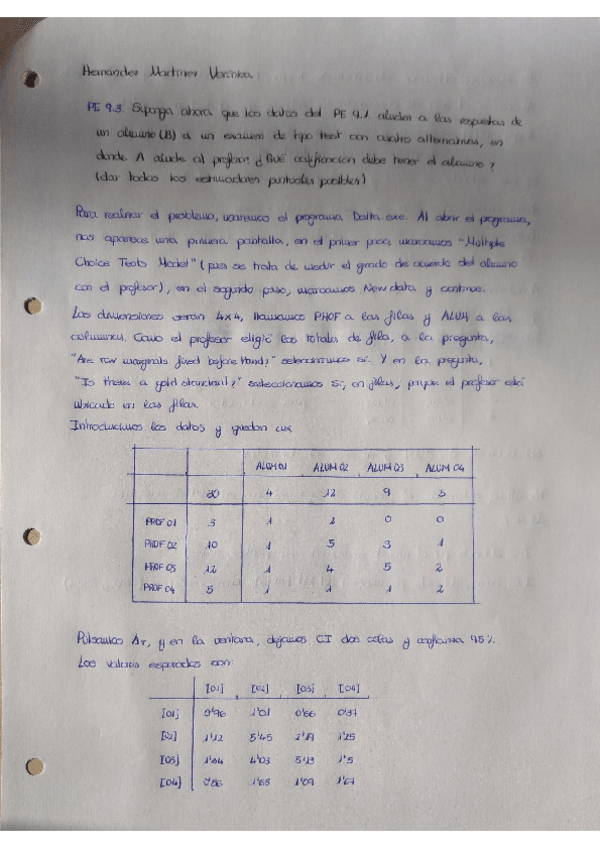 Hernández Martínez Verónica
PE 9.3. Suponga ahora que los datos del PE 9.1 aluden a las respuestas de
un alumno (B) a un examen de tipo test con cuatro alternativas, en
donde A alude al profesor ¿Qué calificación debe tener el alumno?
(dar todos los estimadores puntuales posibles)
Para realizar el problema, usaremos el programa Delta.exe. Al abrir el programa,
nos aparece una primera pantalla, en el primer paso, marcamos "Multiple
Choice Tests Model" (pues se trata de medir el grado de acuerdo del alumno
con el profesor), en el segundo paso, marcamos New data y continue.
Las dimensiones serán 4x4, llamamos PROF a las filas y ALUM a las
columnas. Como el profesor eligió los totales de fila, a la pregunta,
"Are row marginals fixed beforehand?" seleccionamos sí. Y en la pregunta,
"Is there a gold standard?" seleccionamos Sí, en filas, porque el profesor está
ubicado en las filas.
Introducimos los datos y quedan así
ALUM01 ALUM02 ALUM03 ALUM04
30 4 12 9 5
PROF 01 3 1 2 0 0
PROF 02 10 1 5 3 1
PROF 03 12 1 4 5 2
PROF 04 5 1 1 1 2
Pulsamos ΔT, y en la ventana, dejamos CI dos colas y confianza 95%.
Los valores esperados son:
[01] [02] [03] [04]
[01] 0'96 1'01 0'66 0'37
[02] 1'12 5'45 1'25
[03] 4'03 5'13 1'5
[04] 1'09 1'67